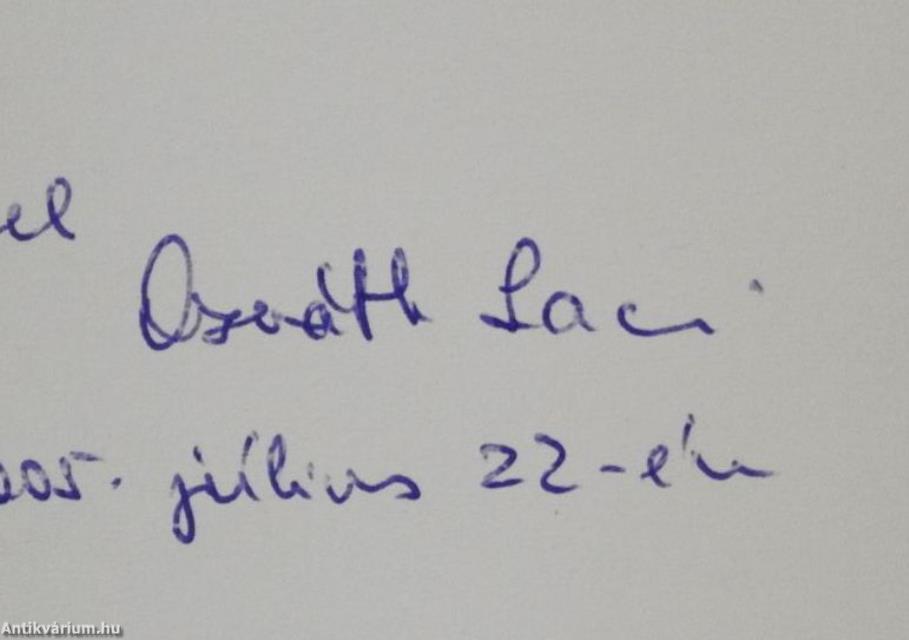 el
Osváth Laci
2005. július 22-én
Antikvárium.hu